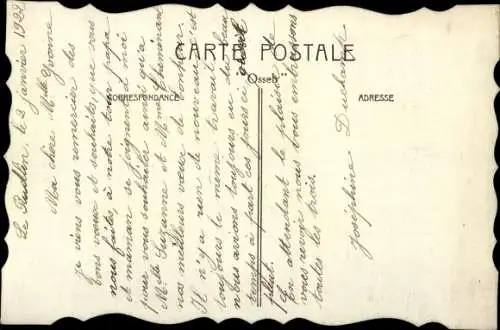 CARTE POSTALE
"Ossefi"
CORRESPONDANCE
ADRESSE
le 2 janvier 1922
Ma chère Melle Yvonne
Je viens vous remercier des
bons vœux et souhaits que vous
nous faites, à notre tour papa
et maman se joignent à moi
pour vous souhaiter ainsi qu'à
Melle Suzanne et Mme
nos meilleurs vœux de bonheur
Il n'y a rien de nouveau c'est
toujours le même travail
nous avions toujours eu du beau
temps à part ces jours ci
pleut.
En attendant le plaisir de
vous revoir nous vous embrassons
toutes les trois.
Joséphine